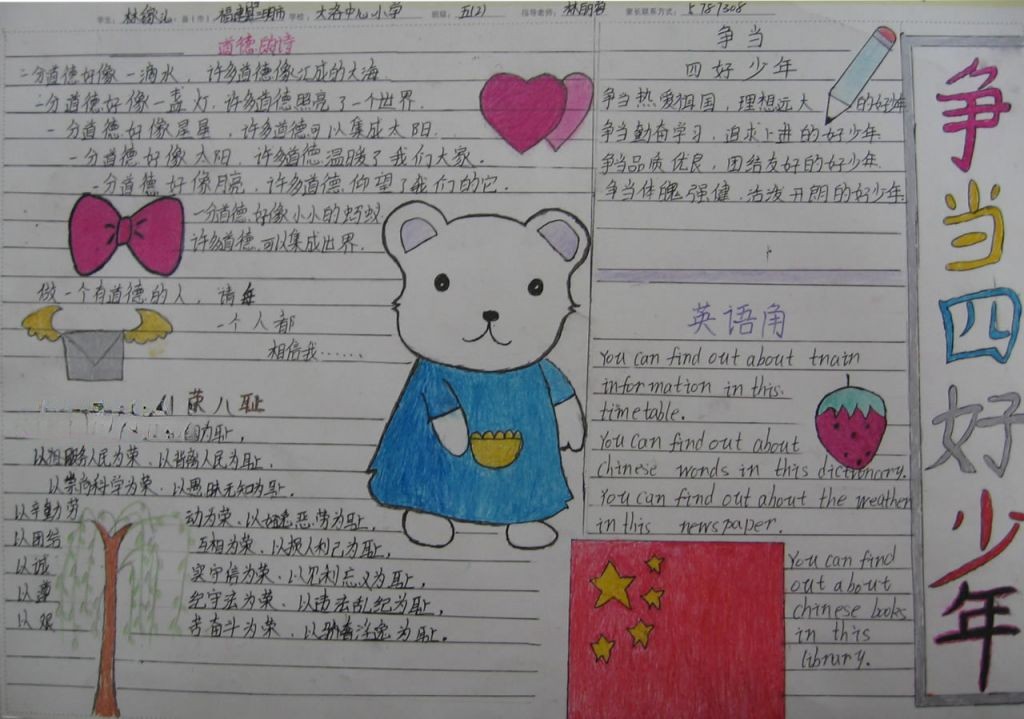 学生: 县(市) 福建省三明市 学校: 大洛中心小学 班级: 五(2) 指导老师: 家长联系方式: 5787308
道德的诗
一分道德好像一滴水,许多道德像汇成的大海.
一分道德好像一盏灯.许多道德照亮了一个世界.
一分道德好像星星,许多道德可以集成太阳.
一分道德好像太阳,许多道德温暖了我们大家.
一分道德好像月亮,许多道德仰望了我们的它.
一分道德好像小小的蚂蚁
许多道德可以集成世界.
做一个有道德的人,请每
一个人都
相信我……
八荣八耻
国为耻,
以服务人民为荣、以背离人民为耻.
以崇尚科学为荣、以愚昧无知为耻.
以辛勤劳动为荣、以好逸恶劳为耻,
以团结互相为荣、以损人利己为耻,
以诚实守信为荣、以见利忘义为耻,
以遵纪守法为荣、以违法乱纪为耻,
以艰苦奋斗为荣、以骄奢淫逸为耻.
争当
四好少年
争当热爱祖国,理想远大的好少年
争当勤奋学习,追求上进的好少年
争当品质优良,团结友好的好少年
争当体魄强健,活泼开朗的好少年
英语角
You can find out about train
information in this
timetable.
You can find out about
chinese words in this dictionary.
You can find out about the weather
in this newspaper.
You can find
out about
chinese books
in this
library.
争当四好少年